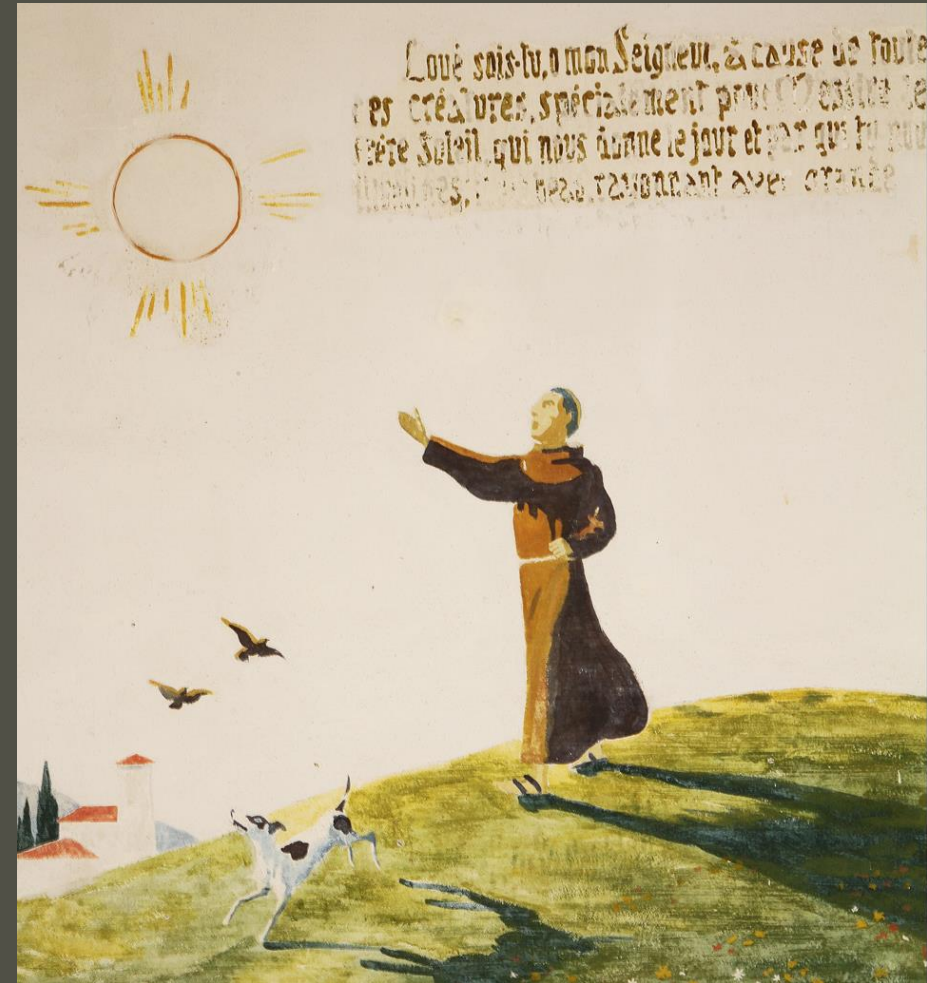 Loué sois-tu, o mon Seigneur, à cause de toute
es créatures, spécialement pour Messire le
frère Soleil, qui nous donne le jour et par qui tu nou
rayonnant avec grande